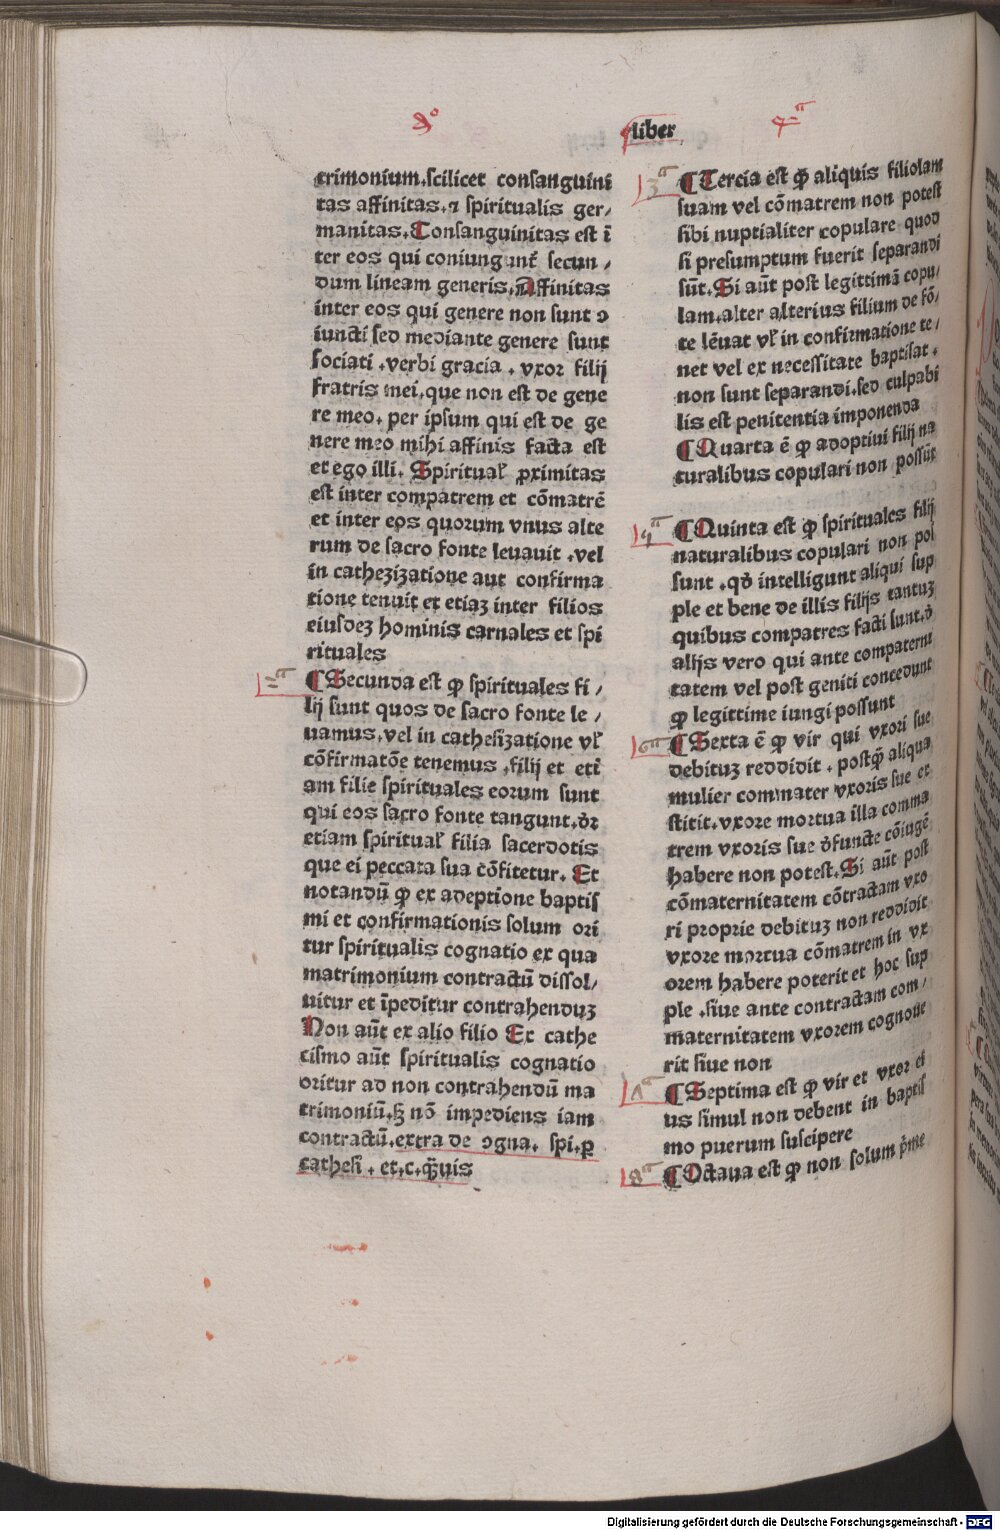 liber
trimonium.scilicet consanguini
tas affinitas.⁊ spiritualis ger/
manitas.Consanguinitas est ī
ter eos qui coniungunt᷑ secun/
dum lineam generis.Affinitas
inter eos qui genere non sunt ↄ
iuncti sed mediante genere sunt
sociati .verbi gracia . vxor filij
fratris mei.que non est de gene
re meo. per ipsum qui est de ge
nere meo mihi affinis facta est
et ego illi. Spiritual̛ ꝓximitas
est inter compatrem et cōmatrē
et inter eos quorum vnus alte
rum de sacro fonte leuauit .vel
in cathezizatione aut confirma
tione tenuit et etiaꝫ inter filios
eiusdeꝫ hominis carnales et spi
rituales
¶Secunda est ꝙ spirituales fi/
lij sunt quos de sacro fonte le/
uamus.vel in cathesizatione vl̛
cōfirmatōe tenemus .filij et eti
am filie spirituales eorum sunt
qui eos sacro fonte tangunt.dꝛ̄
etiam spiritual̛ filia sacerdotis
que ei peccata sua cōfitetur. Et
notandū ꝙ ex adeptione baptis
mi et confirmationis solum ori
tur spiritualis cognatio ex qua
matrimonium contractū dissol/
uitur et īpeditur contrahenduꝫ
Non aūt ex alio filio Ex cathe
cismo aūt spiritualis cognatio
oritur ad non contrahendū ma
trimoniū.sꝫ nō impediens iam
contractū.extra de ↄgna. spi.ꝑ
cathesi . et.c.q̄uis
¶Tercia est ꝙ aliquis filiolam
suam vel cōmatrem non potest
sibi nuptialiter copulare quod
si presumptum fuerit separandi
sūt.Si aūt post legittimā copu/
lam.alter alterius filium de fō/
te lēuat vl̛ in confirmatione te/
net vel ex necessitate baptisat .
non sunt separandi.sed culpabi
lis est penitentia imponenda
¶Quarta ē ꝙ adoptiui filij na
turalibus copulari non possūt
¶Quinta est ꝙ spirituales filij
naturalibus copulari non pos
sunt .qd̛ intelligunt aliqui sup
ple et bene de illis filijs tantuꝫ
quibus compatres facti sunt.d̛
alijs vero qui ante compaterni
tatem vel post geniti concedunt
ꝙ legittime iungi possunt
¶Sexta ē ꝙ vir qui vxori sue
debituꝫ reddidit . postꝙ̄ aliqua
mulier commater vxoris sue ex
stitit.vxore mortua illa comma
trem vxoris sue d̛functe cōiugē
habere non potest.Si aūt post
cōmaternitatem cōtractam vxo
ri proprie debituꝫ non reddidit
vxore mortua cōmatrem in vx
orem habere poterit et hoc sup
ple .siue ante contractam com/
maternitatem vxorem cognoue
rit siue non
¶Septima est ꝙ vir et vxor ei
us simul non debent in baptis
mo puerum suscipere
¶Octaua est ꝙ non solum p̄me
Digitalisierung gefördert durch die Deutsche Forschungsgemeinschaft - DFG